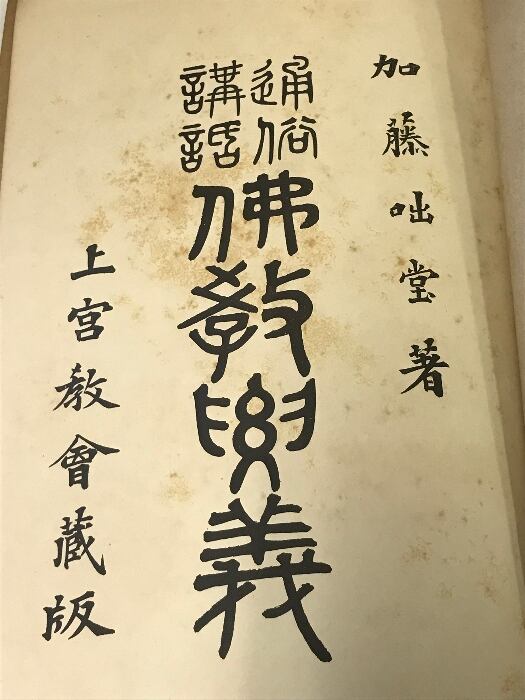 加藤咄堂著
通俗
講話
佛教要義
上宮教會藏版